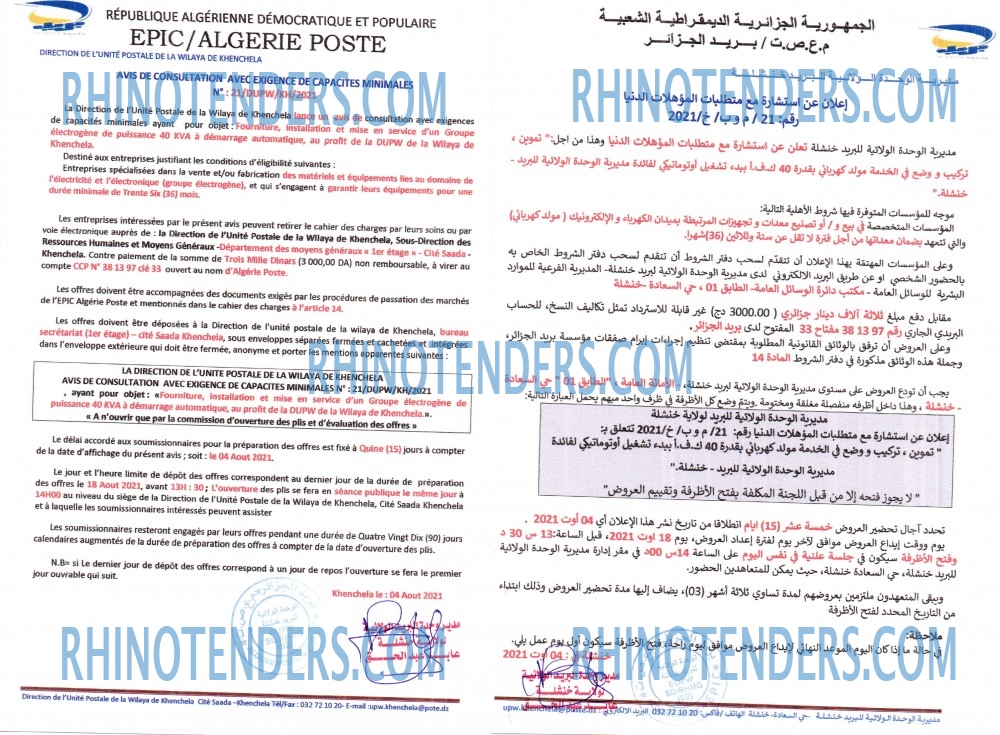 RÉPUBLIQUE ALGÉRIENNE DÉMOCRATIQUE ET POPULAIRE
EPIC/ALGERIE POSTE
DIRECTION DE L'UNITÉ POSTALE DE LA WILAYA DE KHENCHELA
AVIS DE CONSULTATION AVEC EXIGENCE DE CAPACITES MINIMALES
N° : 21/DUPW/KH/2021
RHINOTENDERS.COM
La Direction de l'Unité Postale de la Wilaya de Khenchela lance un avis de consultation avec exigences
de capacités minimales ayant pour objet : Fourniture, installation et mise en service d'un Groupe
électrogène de puissance 40 KVA à démarrage automatique, au profit de la DUPW de la Wilaya de
Khenchela.
Destiné aux entreprises justifiant les conditions d'éligibilité suivantes :
Entreprises spécialisées dans la vente et/ou fabrication des matériels et équipements liés au domaine de
l'électricité et l'électronique (groupe électrogène), et qui s'engagent à garantir leurs équipements pour une
durée minimale de Trente Six (36) mois.
Les entreprises intéressées par le présent avis peuvent retirer le cahier des charges par leurs soins ou par
voie électronique auprès de : la Direction de l'Unité Postale de la Wilaya de Khenchela, Sous-Direction des
Ressources Humaines et Moyens Généraux -Département des moyens généraux « 1er étage » - Cité Saada -
Khenchela. Contre paiement de la somme de Trois Mille Dinars (3 000,00 DA) non remboursable, à virer au
compte CCP N° 38 13 97 clé 33 ouvert au nom d'Algérie Poste.
Les offres doivent être accompagnées des documents exigés par les procédures de passation des marchés
de l'EPIC Algérie Poste et mentionnés dans le cahier des charges à l'article 14.
Les offres doivent être déposées à la Direction de l'unité postale de la wilaya de Khenchela, bureau
secrétariat (1er étage) – cité Saada Khenchela, sous enveloppes séparées fermées et cachetées et intégrées
dans l'enveloppe extérieure qui doit être fermée, anonyme et porter les mentions apparentes suivantes :
RHINOTENDERS.COM
LA DIRECTION DE L'UNITE POSTALE DE LA WILAYA DE KHENCHELA
AVIS DE CONSULTATION AVEC EXIGENCE DE CAPACITES MINIMALES N° : 21/DUPW/KH/2021
, ayant pour objet : «Fourniture, Installation et mise en service d'un Groupe électrogène de
puissance 40 KVA à démarrage automatique, au profit de la DUPW de la Wilaya de Khenchela.».
« A n'ouvrir que par la commission d'ouverture des plis et d'évaluation des offres »
Le délai accordé aux soumissionnaires pour la préparation des offres est fixé à Quine (15) jours à compter
de la date d'affichage du présent avis ; soit : le 04 Aout 2021.
Le jour et l'heure limite de dépôt des offres correspondent au dernier jour de la durée de préparation
des offres le 18 Aout 2021, avant 13H : 30 ; L'ouverture des plis se fera en séance publique le même jour à
14H00 au niveau du siège de la Direction de l'Unité Postale de la Wilaya de Khenchela, Cité Saada Khenchela
et à laquelle les soumissionnaires intéressés peuvent assister
Les soumissionnaires resteront engagés par leurs offres pendant une durée de Quatre Vingt Dix (90) jours
calendaires augmentés de la durée de préparation des offres à compter de la date d'ouverture des plis.
N.B= si Le dernier jour de dépôt des offres correspond à un jour de repos l'ouverture se fera le premier
jour ouvrable qui suit.
Khenchela le : 04 Aout 2021
مدير وحدة البريد الولائية
لولاية خنشلة
RHINOTENDERS.COM
Direction de l'Unité Postale de la Wilaya de Khenchela Cité Saada –Khenchela Tél/Fax : 032 72 10 20- E-mail :upw.khenchela@pote.dz
الجمهورية الجزائرية الديمقراطية الشعبية
م.ع.ص.ت / بريد الجزائر
مديرية الوحدة الولائية للبريد خنشلة
RHINOTENDERS.COM
إعلان عن استشارة مع متطلبات المؤهلات الدنيا
رقم: 21 / م و ب/ خ/2021
مديرية الوحدة الولائية للبريد خنشلة تعلن عن استشارة مع متطلبات المؤهلات الدنيا وهذا من اجل:" تموين ،
تركيب و وضع في الخدمة مولد كهربائي بقدرة 40 ك.ف.أ ببدء تشغيل أوتوماتيكي لفائدة مديرية الوحدة الولائية للبريد -
خنشلة."
موجه للمؤسسات المتوفرة فيها شروط الأهلية التالية:
المؤسسات المتخصصة في بيع و / أو تصنيع معدات و تجهيزات المرتبطة بميدان الكهرباء و الإلكترونيك ( مولد كهربائي)
والتي تتعهد بضمان معداتها من أجل فترة لا تقل عن ستة وثلاثين (36)شهرا.
وعلى المؤسسات المهتمة بهذا الإعلان أن تتقدّم لسحب دفتر الشروط أن تتقدم لسحب دفتر الشروط الخاص به
بالحضور الشخصي او عن طريق البريد الالكتروني لدى مديرية الوحدة الولائية لبريد خنشلة- المديرية الفرعية للموارد
البشرية للوسائل العامة - مكتب دائرة الوسائل العامة- الطابق 01 ، حي السعادة -خنشلة
مقابل دفع مبلغ ثلاثة آلاف دينار جزائري ( 3000.00 دج) غير قابلة للاسترداد تمثل تكاليف النسخ، للحساب
البريدي الجاري رقم 97 13 38 مفتاح 33 المفتوح لدى بريد الجزائر.
وعلى العروض أن ترفق بالوثائق القانونية المطلوبة بمقتضى تنظيم إجراءات إبرام صفقات مؤسسة بريد الجزائر،
وجملة هذه الوثائق مذكورة في دفتر الشروط المادة 14
RHINOTENDERS.COM
يجب أن تودع العروض على مستوى مديرية الوحدة الولائية لبريد خنشلة، - الأمانة العامة ، "الطابق 01 " حي السعادة
- خنشلة ، وهذا داخل أظرفه منفصلة مغلقة ومختومة .ويتم وضع كل الأظرفة في ظرف واحد مبهم يحمل العبارة التالية:
مديرية الوحدة الولائية للبريد لولاية خنشلة
إعلان عن استشارة مع متطلبات المؤهلات الدنيا رقم: 21/ م و ب/ خ/2021 تتعلق بـ:
" تموين ، تركيب و وضع في الخدمة مولد كهربائي بقدرة 40 ك.ف.أ ببدء تشغيل أوتوماتيكي لفائدة
مديرية الوحدة الولائية للبريد - خنشلة."
" لا يجوز فتحه إلا من قبل اللجنة المكلفة بفتح الأظرفة وتقييم العروض"
تحدد آجال تحضير العروض خمسة عشر (15) ايام انطلاقا من تاريخ نشر هذا الإعلان أي 04 أوت 2021 .
يوم ووقت إيداع العروض موافق لآخر يوم لفترة إعداد العروض، يوم 18 اوت 2021، قبل الساعة:13 س 30 د
وفتح الأظرفة سيكون في جلسة علنية في نفس اليوم على الساعة 14س 00د في مقر إدارة مديرية الوحدة الولائية
للبريد خنشلة، حي السعادة خنشلة، حيث يمكن للمتعهدين الحضور.
ويبقى المتعهدون ملتزمين بعروضهم لمدة تساوي ثلاثة أشهر (03)، يضاف إليها مدة تحضير العروض وذلك ابتداء
من التاريخ المحدد لفتح الأظرفة
ملاحظة:
في حالة ما إذا كان اليوم الموعد النهائي لإيداع العروض موافق ليوم راحة، فتح الأظرفة سيكون أول يوم عمل يلي.
خنشلة في : 04 اوت 2021
RHINOTENDERS.COM
مدير وحدة البريد الولائية
لولاية خنشلة
مديرية الوحدة الولائية للبريد خنشلة حي السعادة- خنشلة الهاتف /فاكس: 20 10 72 032 البريد الالكتروني: upw.khenchela@poste.dz